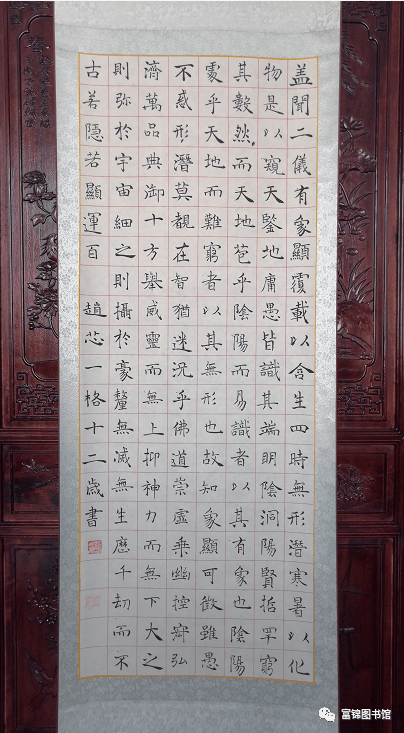 盖聞二儀有象顯覆載以含生四時無形潛寒暑以化
物是以窺天鑒地庸愚皆識其端明陰洞陽賢哲罕窮
其數然而天地苞乎陰陽而易識者以其有象也陰陽
處乎天地而難窮者以其無形也故知象顯可徵雖愚
不惑形潛莫覩在智猶迷況乎佛道崇虛乘幽控寂弘
濟萬品典御十方舉威靈而無上抑神力而無下大之
則弥於宇宙細之則攝於豪釐無滅無生歷千劫而不
古若隱若顯運百
趙芯一格十二歲書
富锦图书馆